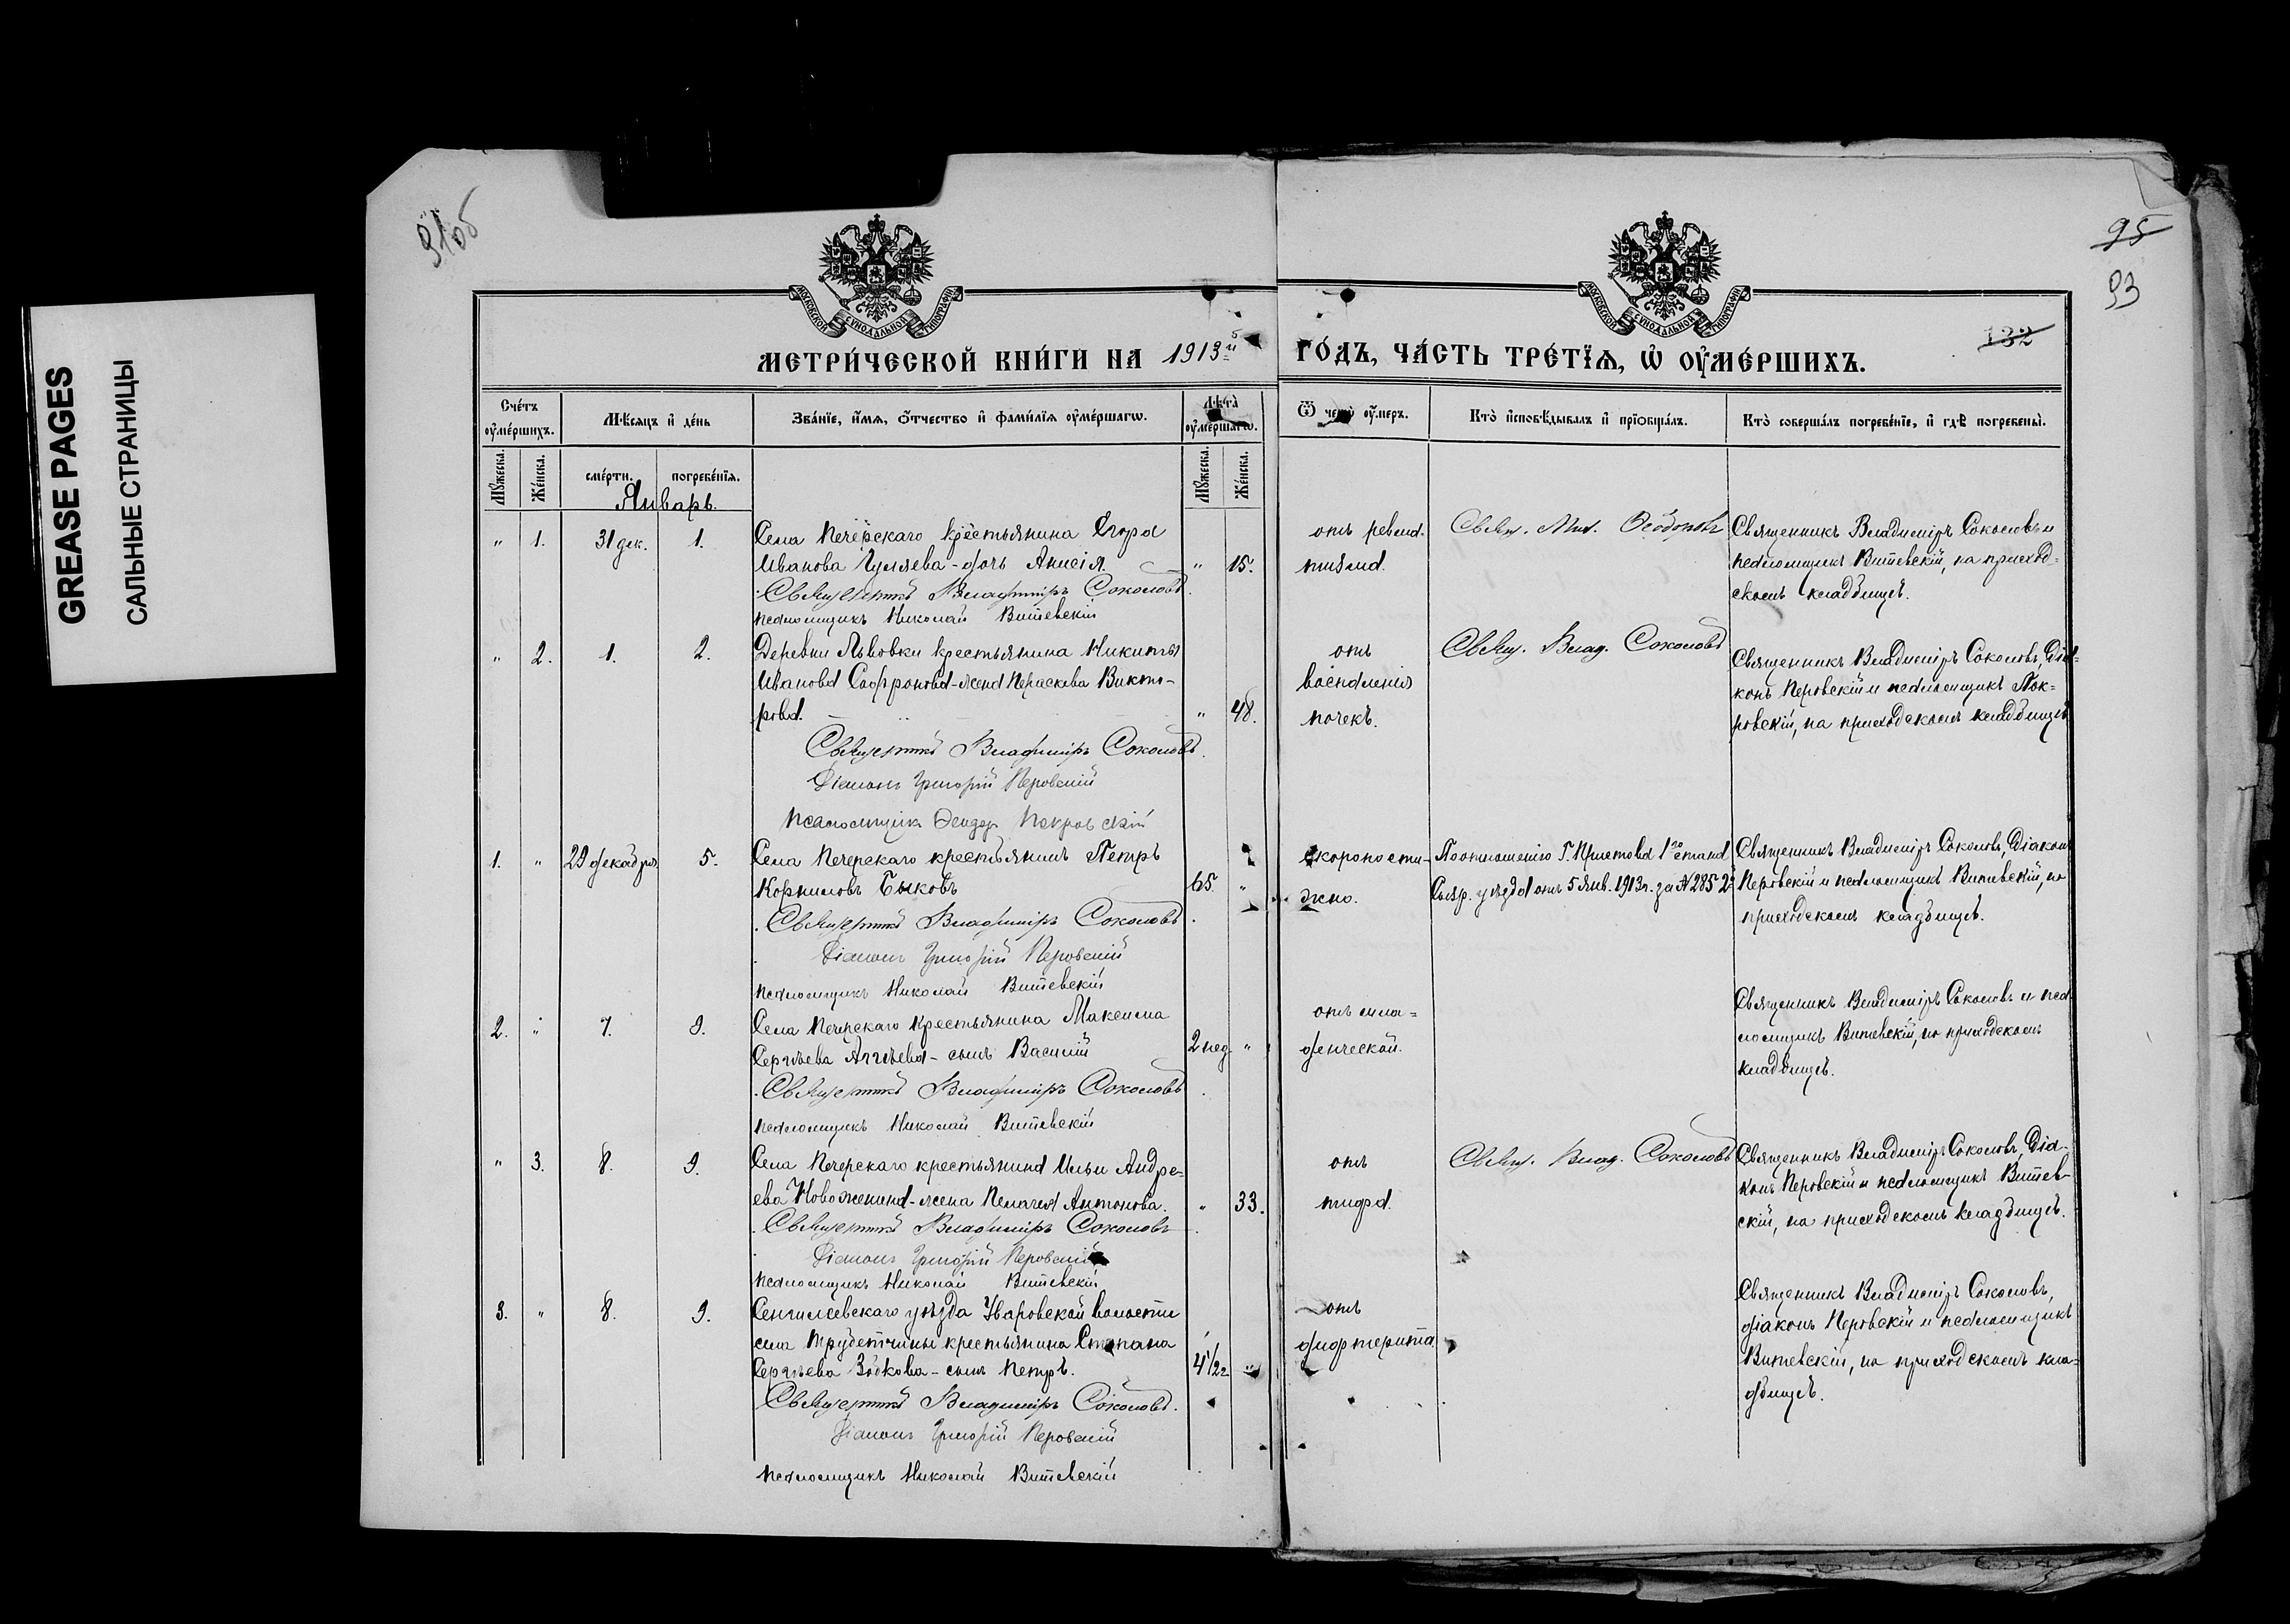 GREASE PAGES
САЛЬНЫЕ СТРАНИЦЫ
95
93
132
МОСКОВСКОЙ СУНОДАЛЬНОЙ ТИПОГРАФІИ
МОСКОВСКОЙ СУНОДАЛЬНОЙ ТИПОГРАФІИ
МЕТРИ́ЧЕСКОЙ КНИ́ГИ НА 1913й ГО́ДЪ, ЧА́СТЬ ТРЕ́ТЇѦ, Ѡ҆ ОУ҆МЕ́РШИХЪ.
Сче́тъ оу҆ме́ршихъ.
Мѣ́сѧцъ и҆ де́нь
Зва́нїе, и҆́мѧ, ѻ҆́тчество и҆ фами́лїѧ оу҆ме́ршагѡ.
Лѣ́та оу҆ме́ршагѡ.
Ѿ чегѡ̀ оу҆́меръ.
Кто̀ и҆сповѣ́дывалъ и҆ прїѡбща́лъ.
Кто̀ соверша́лъ погребе́нїе, и҆ гдѣ̀ погребены̀.
Мꙋ́жеска.
Же́нска.
сме́рти.
погребе́нїѧ.
Мꙋ́жеска.
Же́нска.
Январь.
" 1. 31 дек. 1.
Села Печерскаго крестьянина Егора
Иванова Гуляева - дочь Анисія. " 15.
Священникъ Владиміръ Соколовъ.
псаломщикъ Николай Витевскій
отъ ревма-
тизма.
Свящ. Мих. Ѳедоровъ
Священникъ Владиміръ Соколовъ и
псаломщикъ Витевскій, на приход-
скомъ кладбищѣ.
" 2. 1. 2.
Деревни Львовки крестьянина Никиты
Иванова Сафронова - жена Параскева Викто-
рова. " 48.
Священникъ Владиміръ Соколовъ.
Діаконъ Григорій Перовскій
псаломщикъ Ѳеодоръ Покровскій
отъ
воспаленія
почекъ.
Свящ. Влад. Соколовъ
Священникъ Владиміръ Соколовъ, Діа-
конъ Перовскій и псаломщикъ Пок-
ровскій, на приходскомъ кладбищѣ
1. " 29 декабря 5.
Села Печерскаго крестьянинъ Петръ
Корниловъ Быковъ 65. "
Священникъ Владиміръ Соколовъ.
Діаконъ Григорій Перовскій
псаломщикъ Николай Витевскій
скоропости-
жно.
По отношенію Г. Пристава 1го стана
Сызр. уѣзда отъ 5 Янв. 1913 г. за № 285
Священникъ Владиміръ Соколовъ, Діаконъ
Перовскій и псаломщикъ Витевскій, на
приходскомъ кладбищѣ.
2. " 7. 9.
Села Печерскаго крестьянина Максима
Сергѣева - сынъ Василій 2 нед. "
Священникъ Владиміръ Соколовъ.
псаломщикъ Николай Витевскій
отъ мла-
денческой.
Священникъ Владиміръ Соколовъ и пса-
ломщикъ Витевскій, на приходскомъ
кладбищѣ.
" 3. 8. 9.
Села Печерскаго крестьянина Ильи Андре-
ева Новоженина - жена Пелагея Антонова. " 33.
Священникъ Владиміръ Соколовъ.
Діаконъ Григорій Перовскій
псаломщикъ Николай Витевскій
отъ
тифа.
Свящ. Влад. Соколовъ
Священникъ Владиміръ Соколовъ, Діа-
конъ Перовскій и псаломщикъ Витев-
скій, на приходскомъ кладбищѣ.
3. " 8. 9.
Сенгилеевскаго уѣзда волости
села крестьянина Степана
Сергѣева Зобкова - сынъ Петръ. 4 1/2 г "
Священникъ Владиміръ Соколовъ.
Діаконъ Григорій Перовскій
псаломщикъ Николай Витевскій
отъ
дифтерита.
Священникъ Владиміръ Соколовъ,
діаконъ Перовскій и псаломщикъ
Витевскій, на приходскомъ кла-
дбищѣ.